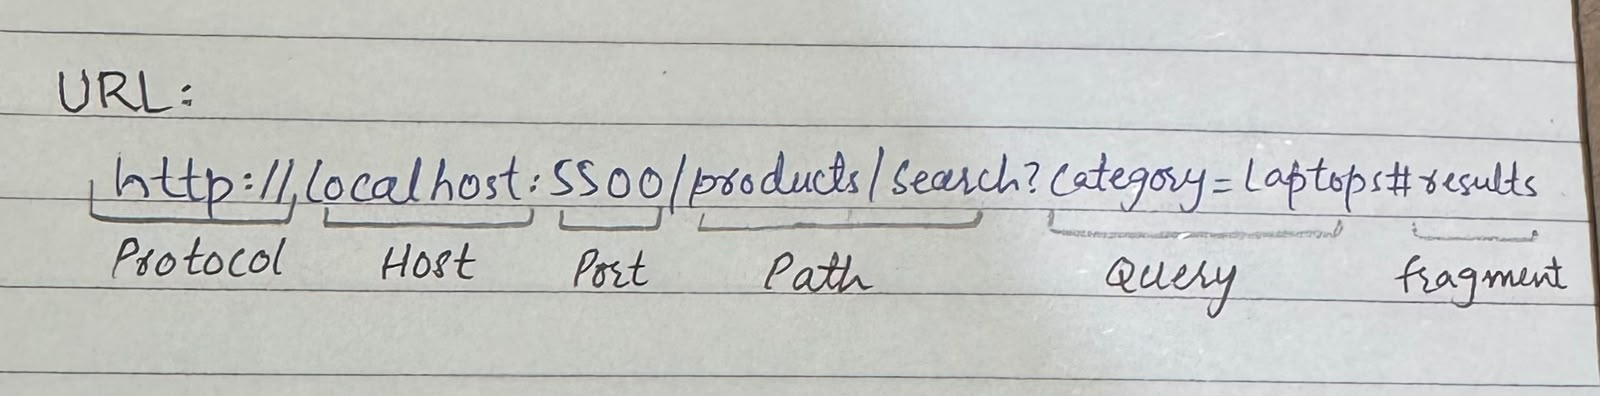 URL:
http://localhost:5500/products/search?category=laptops#results
Protocol Host Port Path Query fragment